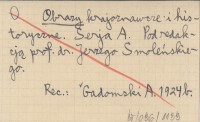 Obrazy krajoznawcze i his-
toryczne. Serja A. Pod redak-
cją prof. dr. Jerzego Smoleńskie-
go.
Rec.: Gadomski A. 1924 b.